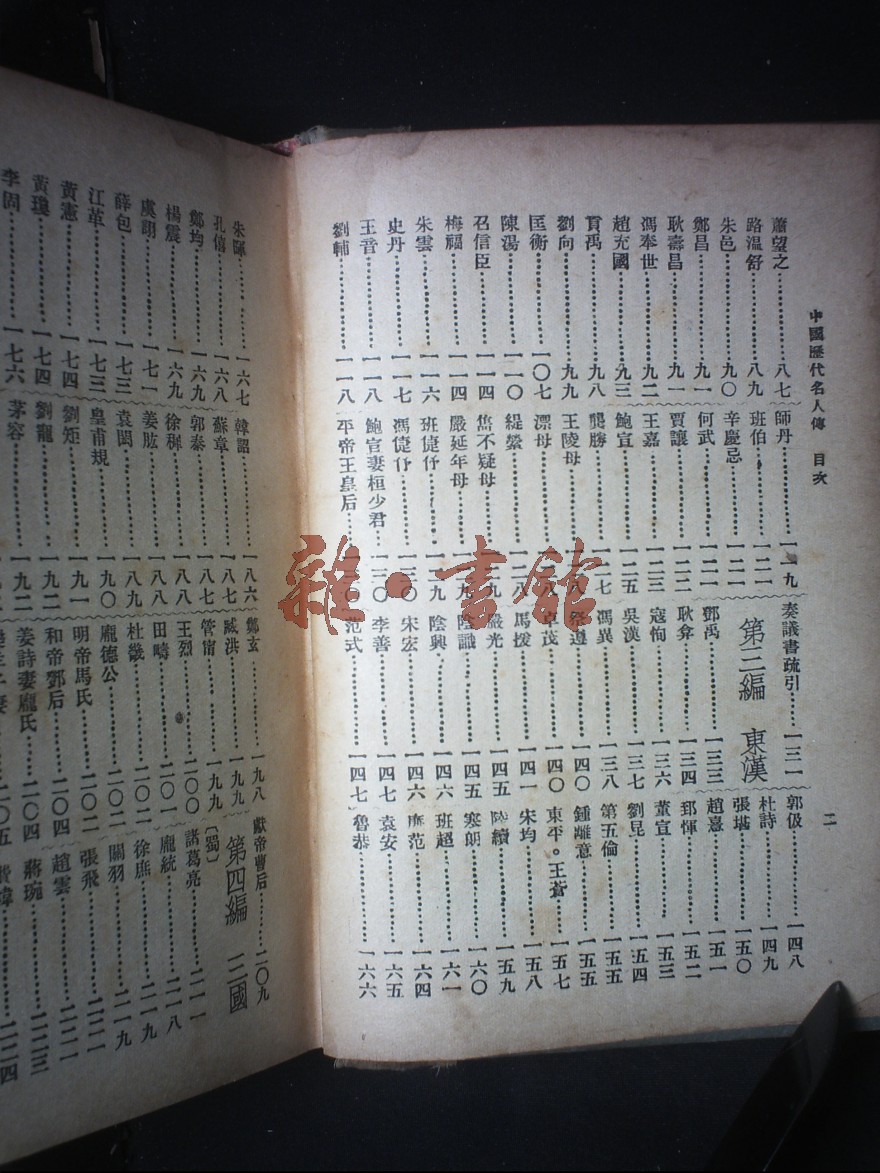 中國歷代名人傳 目次 二
蕭望之……八七
路溫舒……八九
朱邑……九〇
鄭昌……九一
耿壽昌……九一
馮奉世……九二
趙充國……九三
貢禹……九八
劉向……九九
匡衡……一〇七
陳湯……一一〇
召信臣……一一四
梅福……一一四
朱雲……一一六
史丹……一一七
王音……一一八
劉輔……一一八
師丹……一一九
班伯……一二一
辛慶忌……一二一
何武……一二二
賈讓……一二二
王嘉……一二三
鮑宣……一二五
龔勝……一二七
王陵母……二八
漂母……二八
緹縈……一二八
雋不疑母……二九
嚴延年母……一二九
班倢伃……一二九
馮倢伃……一三〇
鮑宣妻桓少君……一三〇
平帝王皇后……〇
奏議書疏引……一三一
第三編 東漢
鄧禹……一三三
耿弇……一三四
寇恂……一三六
吳漢……一三七
馮異……一三八
祭遵……一四〇
卓茂……一四〇
馬援……一四一
嚴光……一四五
陰識……一四五
陰興……一四六
宋宏……一四六
李善……一四七
范式……一四七
郭伋……一四八
杜詩……一四九
張堪……一五〇
趙憙……一五一
郅惲……一五二
董宣……一五三
劉昆……一五四
第五倫……一五五
鍾離意……一五五
東平。王蒼……一五七
宋均……一五八
陸續……一五九
寒朗……一六〇
班超……一六一
廉范……一六四
袁安……一六五
魯恭……一六六
朱暉……一六七
孔僖……一六八
鄭均……一六九
楊震……一六九
虞詡……一七一
薛包……一七三
江革……一七三
黃憲……一七四
黃瓊……一七四
李固……一七六
韓韶……一八六
蘇章……一八七
郭泰……一八七
徐穉……一八八
姜肱……一八八
袁閎……一八九
皇甫規……一九〇
劉矩……一九一
劉寵……一九二
茅容……
鄭玄……一九八
臧洪……一九九
管甯……一九九
王烈……二〇〇
田疇……二〇二
杜畿……二〇二
龐德公……二〇二
明帝馬氏……二〇四
和帝鄧后……二〇四
姜詩妻龐氏……二〇五
獻帝曹后……二〇九
第四編 三國
〔蜀〕
諸葛亮……二一一
龐統……二一八
徐庶……二一九
關羽……二一九
張飛……二二一
趙雲……二二一
蔣琬……二二三
費禕……二二四
雜·書館